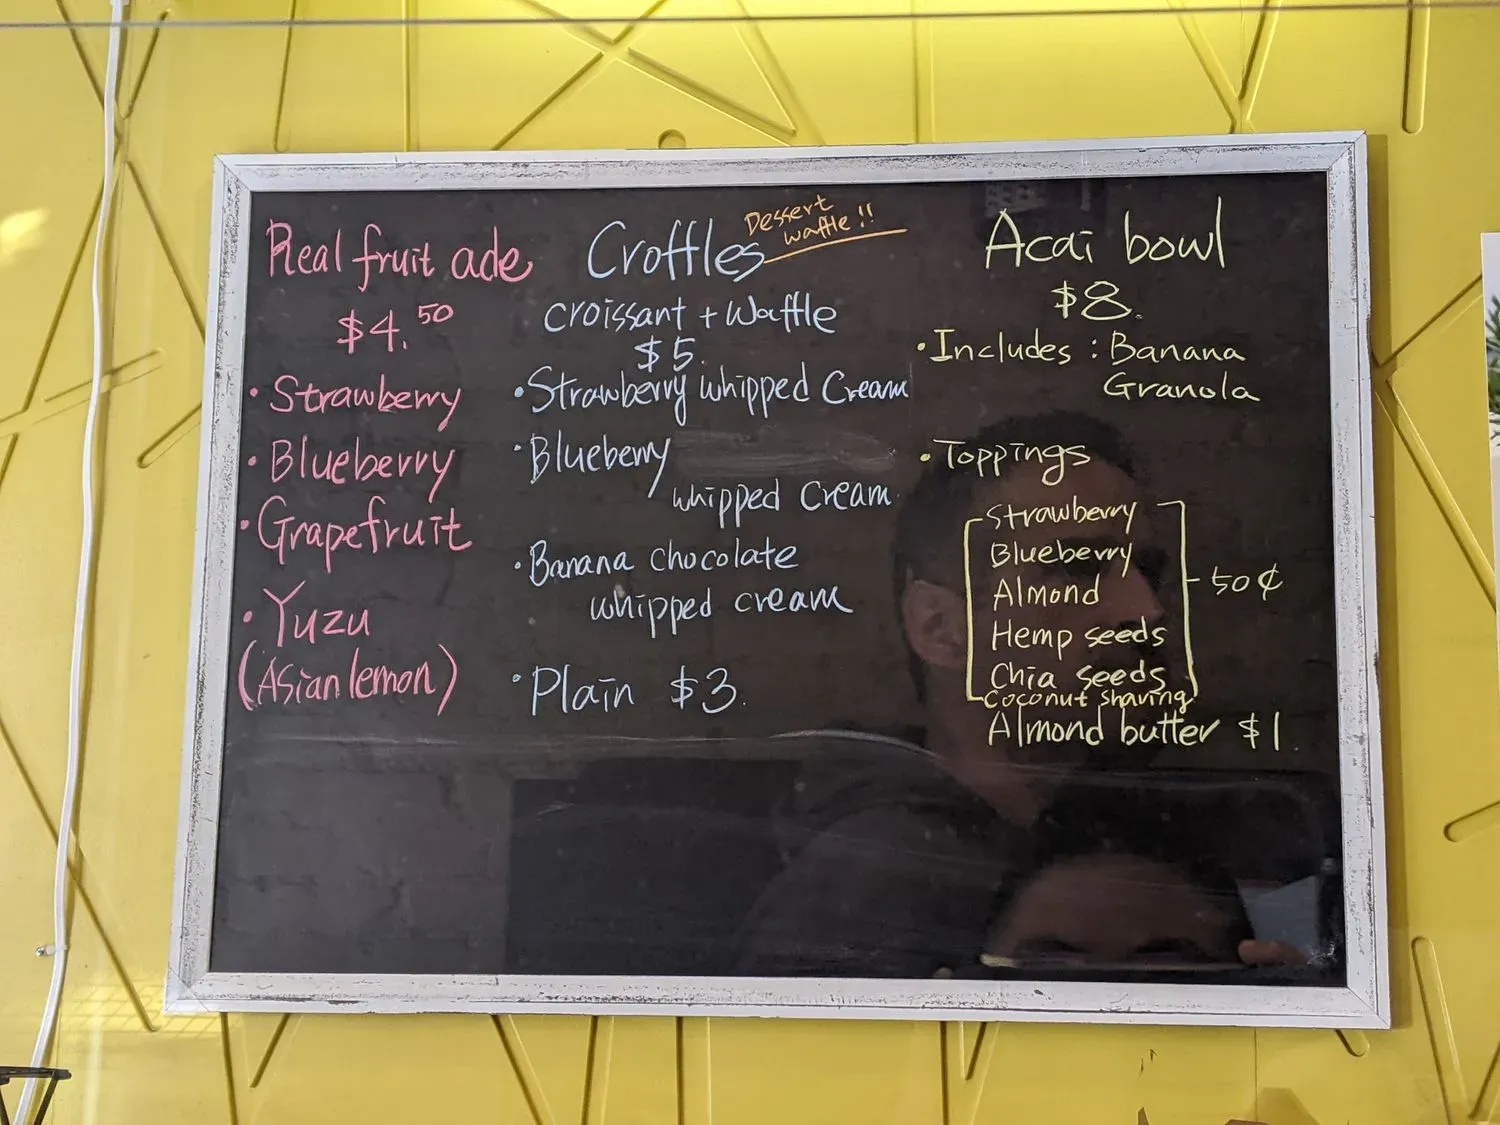 Real fruit ade
$4.50
• Strawberry
• Blueberry
• Grapefruit
• Yuzu
(Asian lemon)
Croffles
Dessert
waffle!!
croissant + Waffle
$5.
• Strawberry whipped Cream
• Blueberry
whipped Cream
• Banana chocolate
whipped cream
• Plain $3.
Acai bowl
$8.
• Includes : Banana
Granola
• Toppings
Strawberry
Blueberry
Almond
50¢
Hemp seeds
Chia seeds
Coconut shaving
Almond butter $1